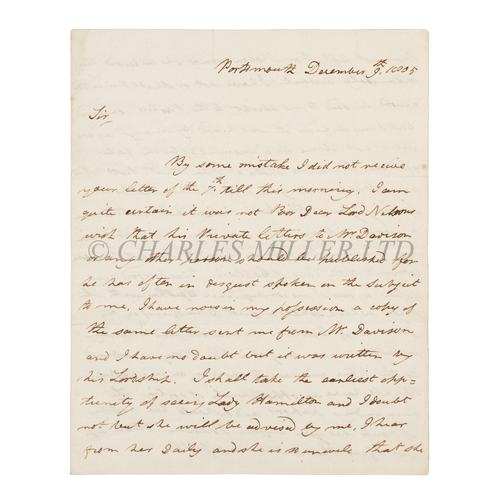 Portsmouth December 9th. 1805
Sir,
By some mistake I did not receive
your letter of the 7th till this morning. I am
quite certain it was not Poor Dear Lord Nelsons
wish that his Private letters to Mr Davison
or any other person should be published for
© CHARLES MILLER LTD
he has often in disgust spoken on the subject
to me, I have now in my possession a copy of
the same letter sent me from Mr. Davison
and I have no doubt but it was written by
his Lordship. I shall take the earliest opp=
tunity of seeing Lady Hamilton and I doubt
not but she will be advised by me, I hear
from her Daily and she is so unwell that she